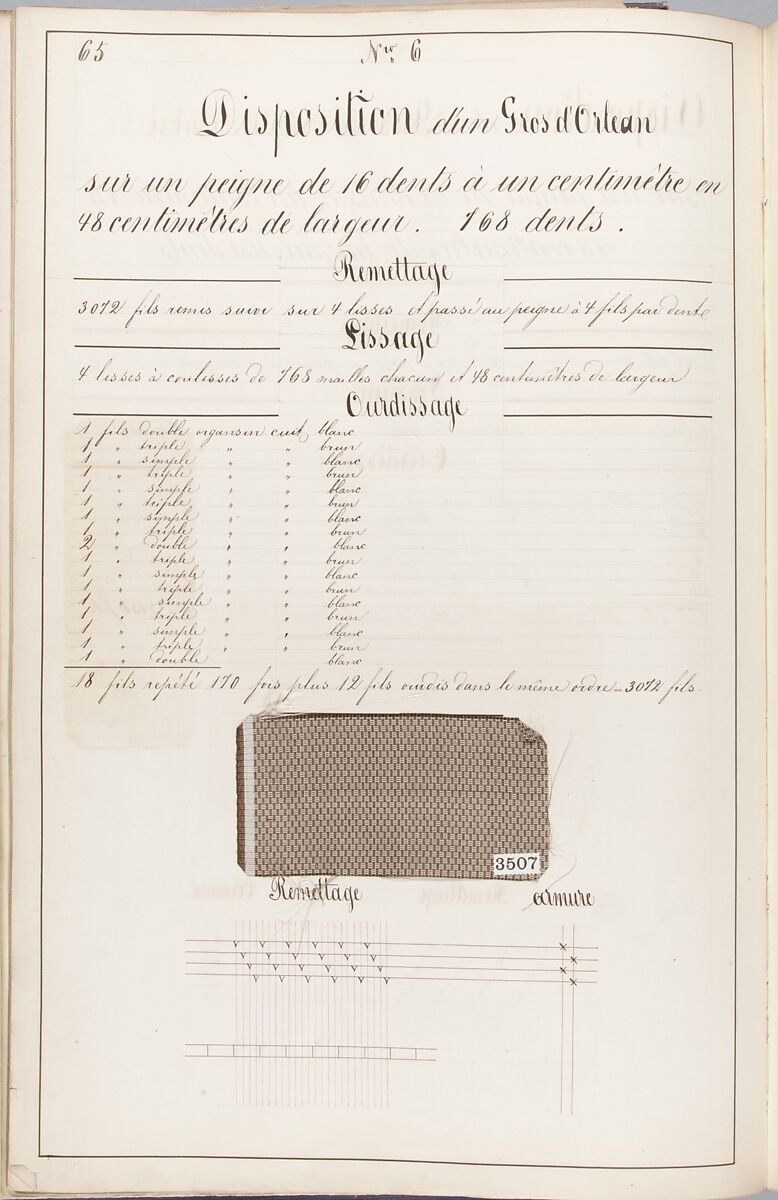 65
Nro 6
Disposition d'un Gros d'Orlean
sur un peigne de 16 dents à un centimètre en
48 centimètres de largeur. 768 dents.
Remettage
3072 fils remis suivi sur 4 lisses et passé au peigne à 4 fils par dents
Lissage
4 lisses à coulisses de 768 mailles chacun et 48 centimètres de largeur
Ourdissage
1 fils double organsin cuit blanc
1 " triple " " brun
1 " simple " " blanc
1 " triple " " brun
1 " simple " " blanc
1 " triple " " brun
1 " simple " " blanc
1 " triple " " brun
2 " double " " blanc
1 " triple " " brun
1 " simple " " blanc
1 " triple " " brun
1 " simple " " blanc
1 " triple " " brun
1 " simple " " blanc
1 " triple " " brun
1 " double blanc
18 fils repété 170 fois plus 12 fils ourdis dans le même ordre = 3072 fils.
3507
Remettage armure